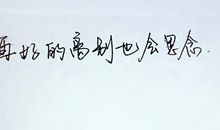 再好的离别也会思念.